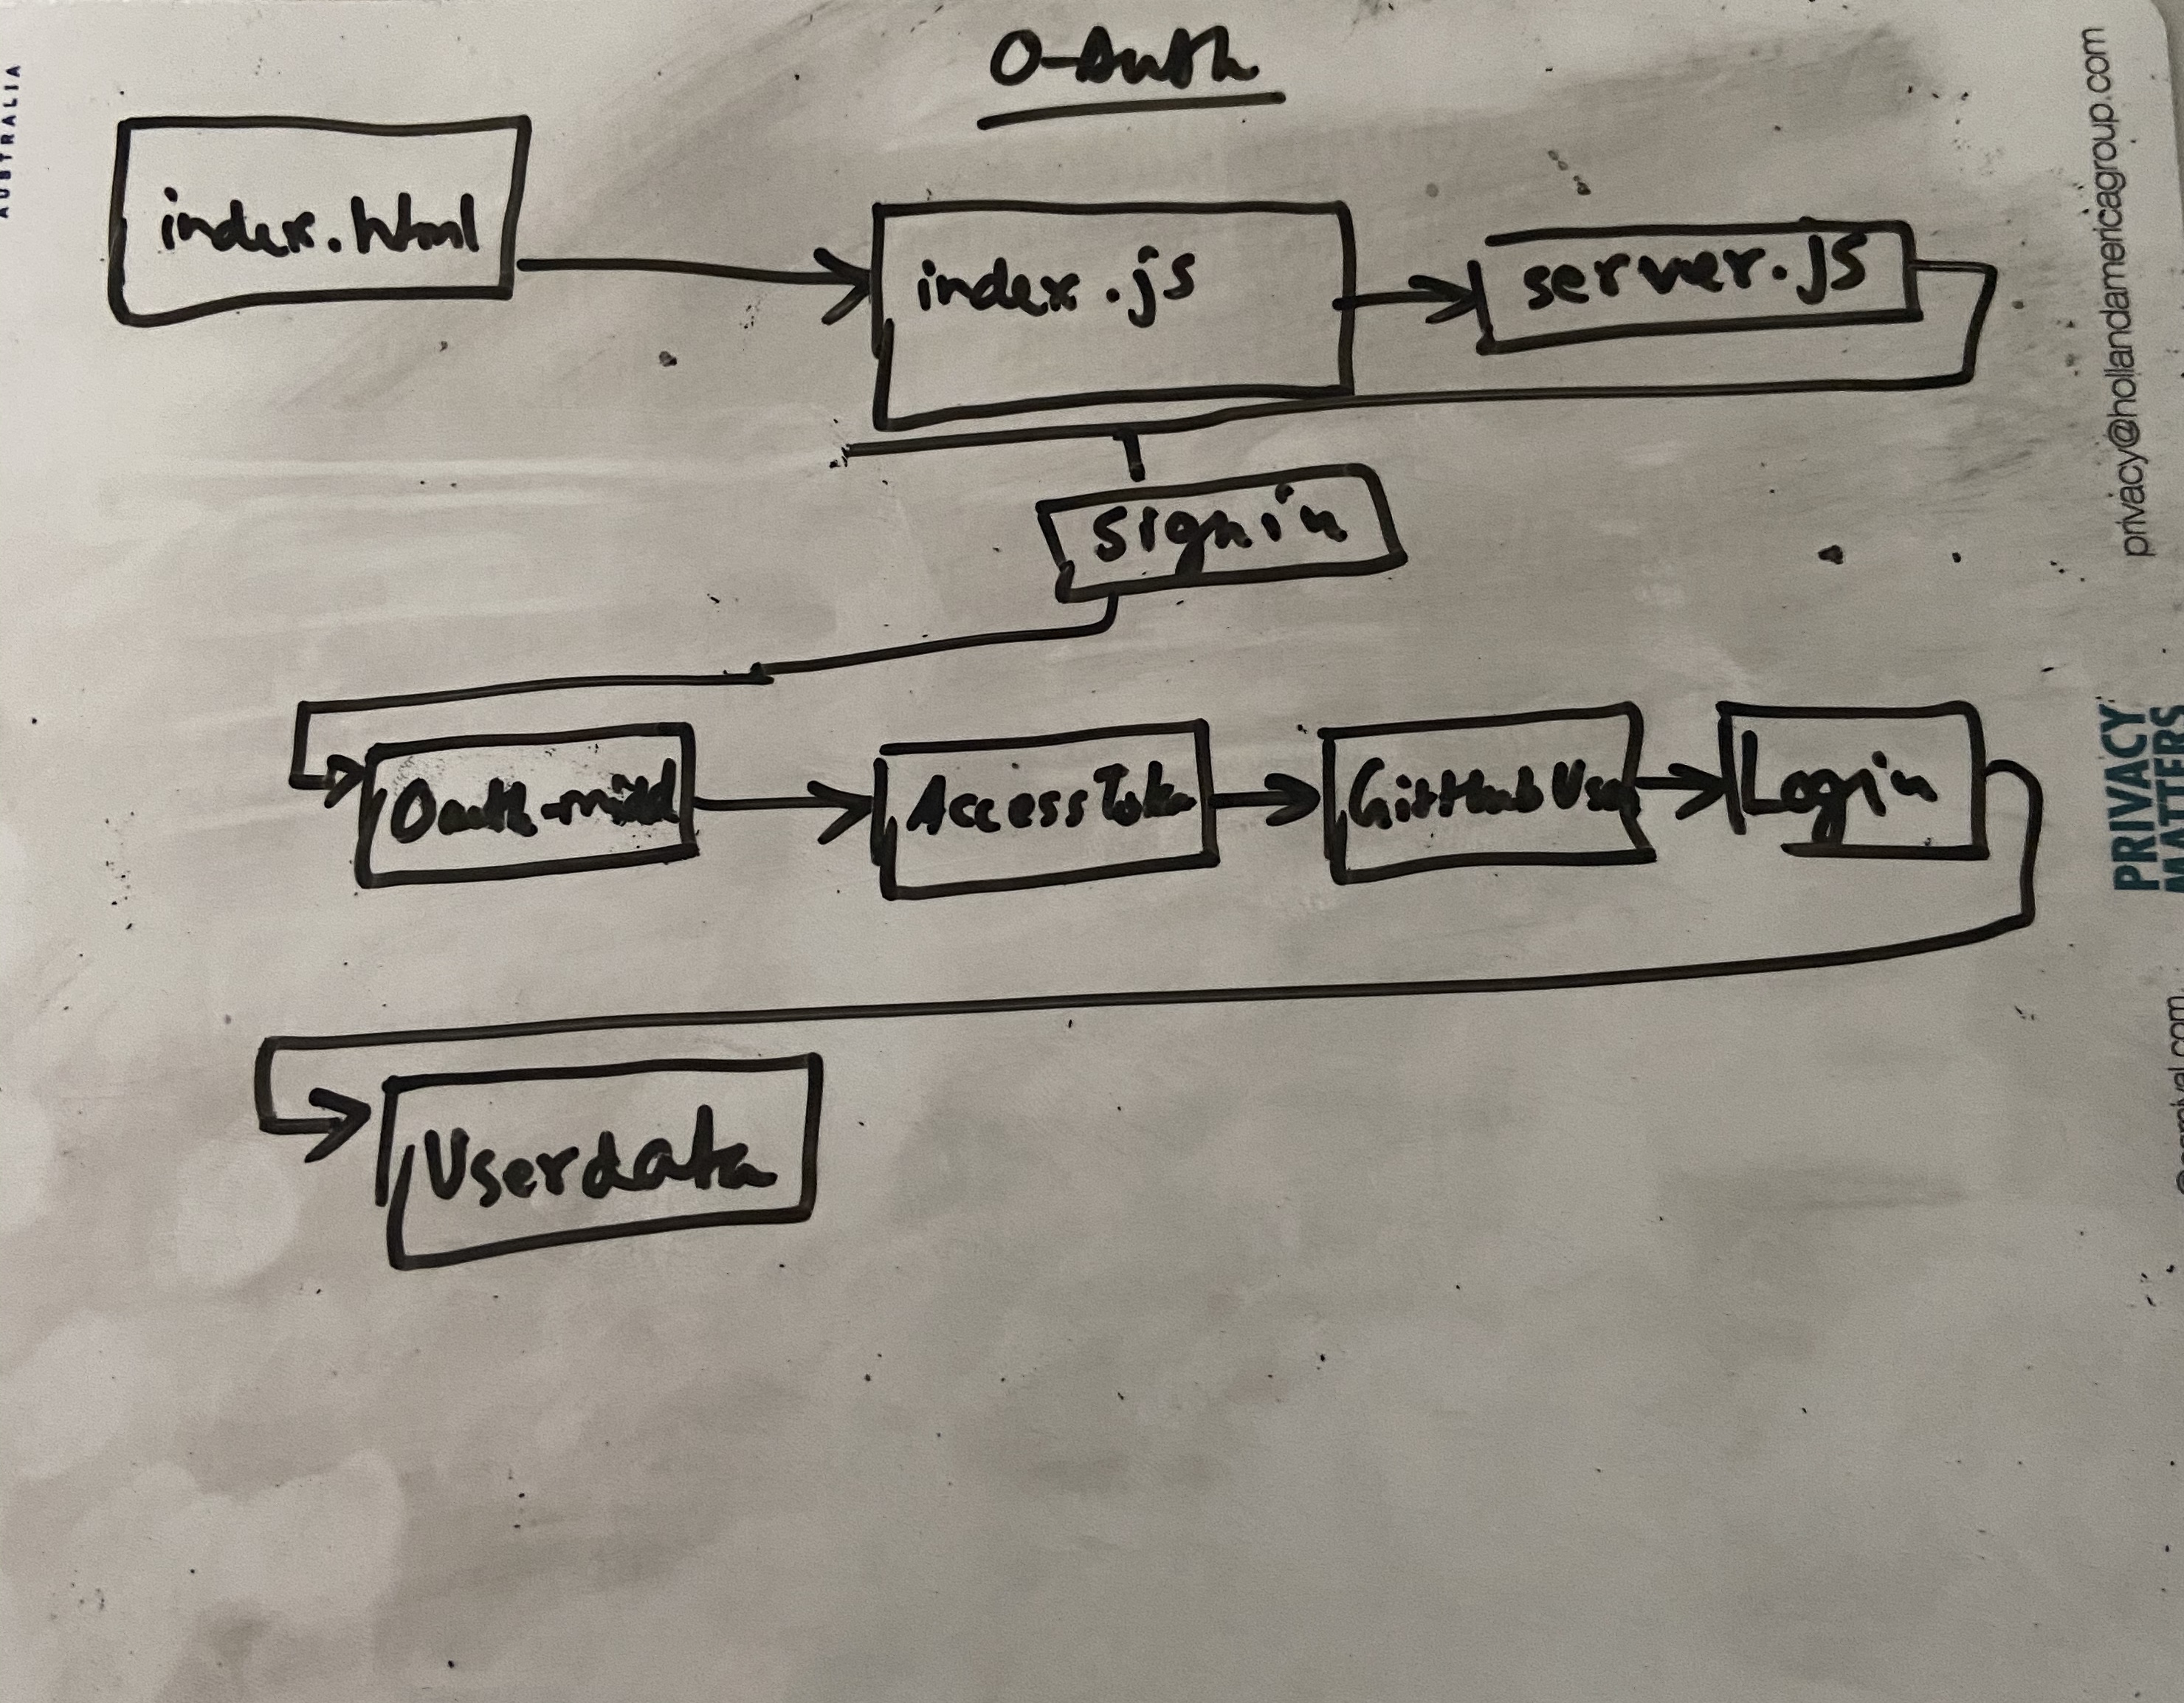 O-Auth
index.html
index.js
server.js
signin
Oauth-midd
AccessToken
GitHubUser
Login
Userdata
AUSTRALIA
privacy@hollandamericagroup.com
PRIVACY
MATTERS